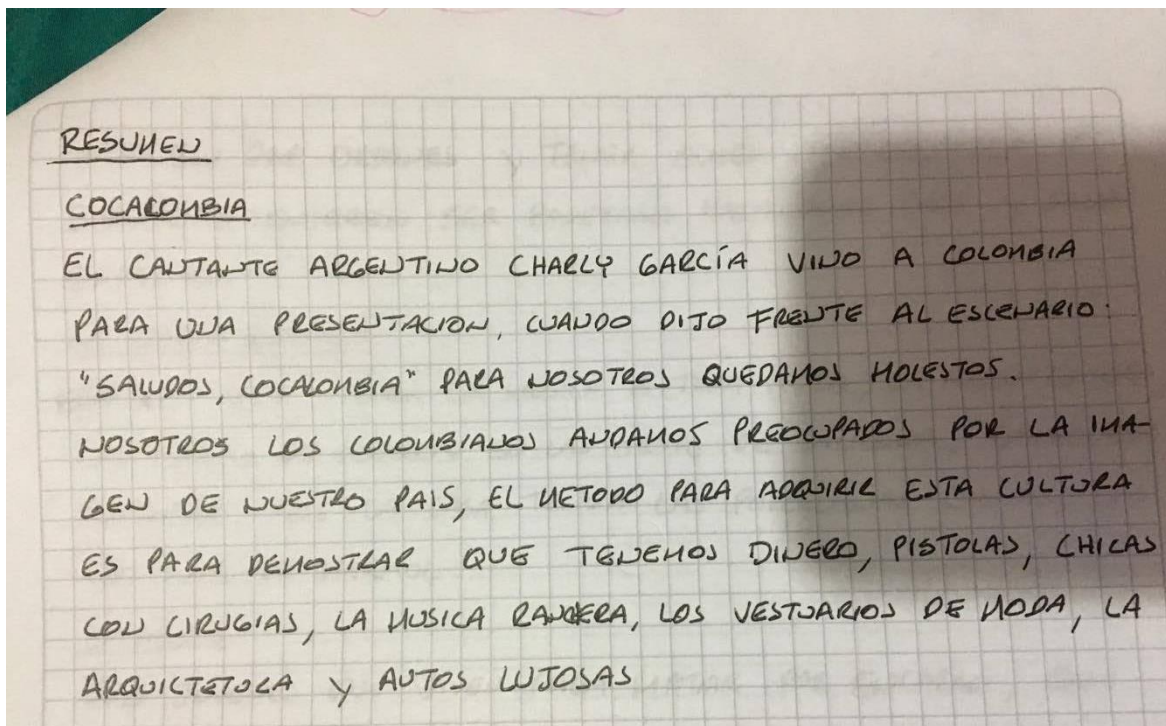 RESUMEN
COCALOMBIA
EL CANTANTE ARGENTINO CHARLY GARCÍA VINO A COLOMBIA
PARA UNA PRESENTACION, CUANDO DIJO FRENTE AL ESCENARIO:
"SALUDOS, COCALOMBIA" PARA NOSOTROS QUEDAMOS MOLESTOS.
NOSOTROS LOS COLOMBIANOS ANDAMOS PREOCUPADOS POR LA IMA-
GEN DE NUESTRO PAIS, EL METODO PARA ADQUIRIR ESTA CULTURA
ES PARA DEMOSTRAR QUE TENEMOS DINERO, PISTOLAS, CHICAS
CON CIRUGIAS, LA MUSICA RANCHERA, LOS VESTUARIOS DE MODA, LA
ARQUICTETURA Y AUTOS LUJOSAS